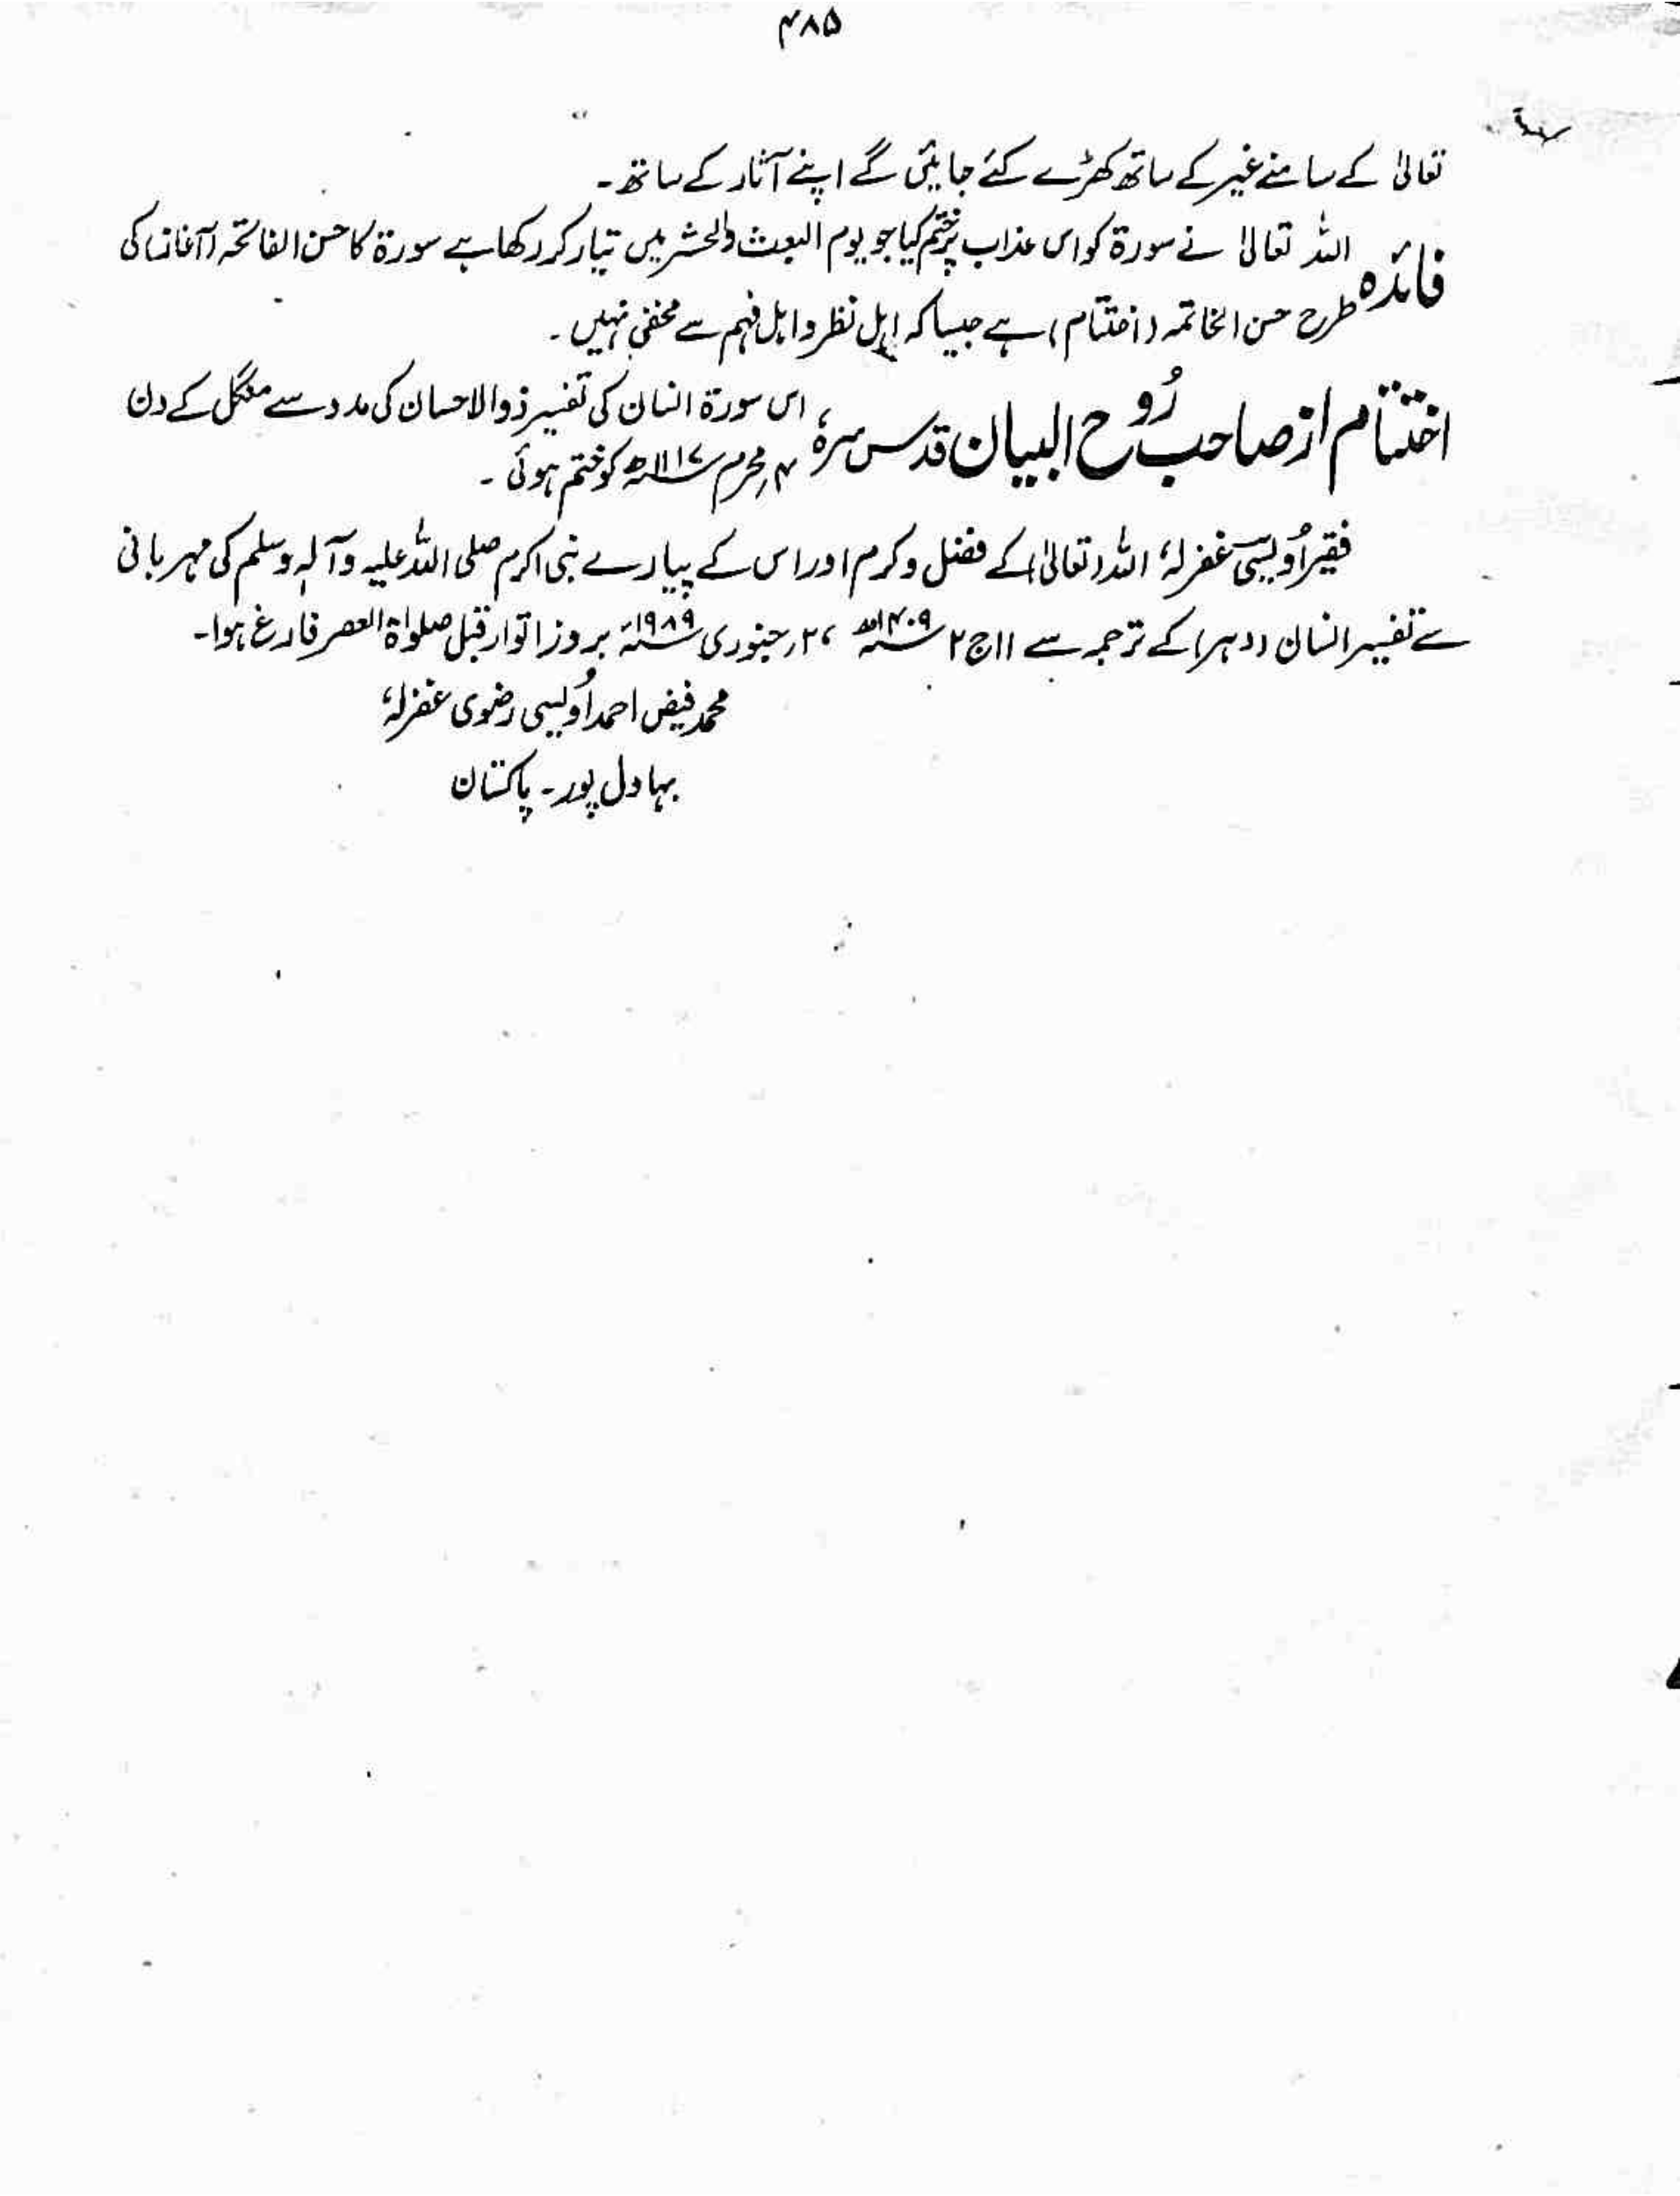 ۴۸۵
تعالیٰ کے سامنے غیر کے ساتھ کھڑے کئے جائیں گے اپنے آثار کے ساتھ۔
فائدہ اللہ تعالیٰ نے سورۃ کو اس عذاب پر ختم کیا جو یوم البعث والحشر میں تیار کر رکھا ہے سورۃ کا حسن الفاتحہ (آغاز) کی
طرح حسن الخاتمہ (اختتام) ہے جیسا کہ اہل نظر و اہل فہم سے مخفی نہیں۔
اختتام از صاحب رُوح البیان قدس سرہٗ اس سورۃ انسان کی تفسیر ذوالاحسان کی مدد سے منگل کے دن
۴؍محرم ۱۱۱۷ھ کو ختم ہوئی۔
فقیر اُویسی غفرلہٗ اللہ (تعالیٰ) کے فضل و کرم اور اس کے پیارے نبی اکرم صلی اللہ علیہ وآلہٖ وسلم کی مہربانی
سے تفسیر انسان (دہر) کے ترجمہ سے ۱۱ ج ۲ ۱۴۰۹ھ ؍جنوری ۱۹۸۹ء بروز اتوار قبل صلواۃ العصر فارغ ہوا۔
محمد فیض احمد اُویسی رضوی غفرلہٗ
بہاول پور۔ پاکستان